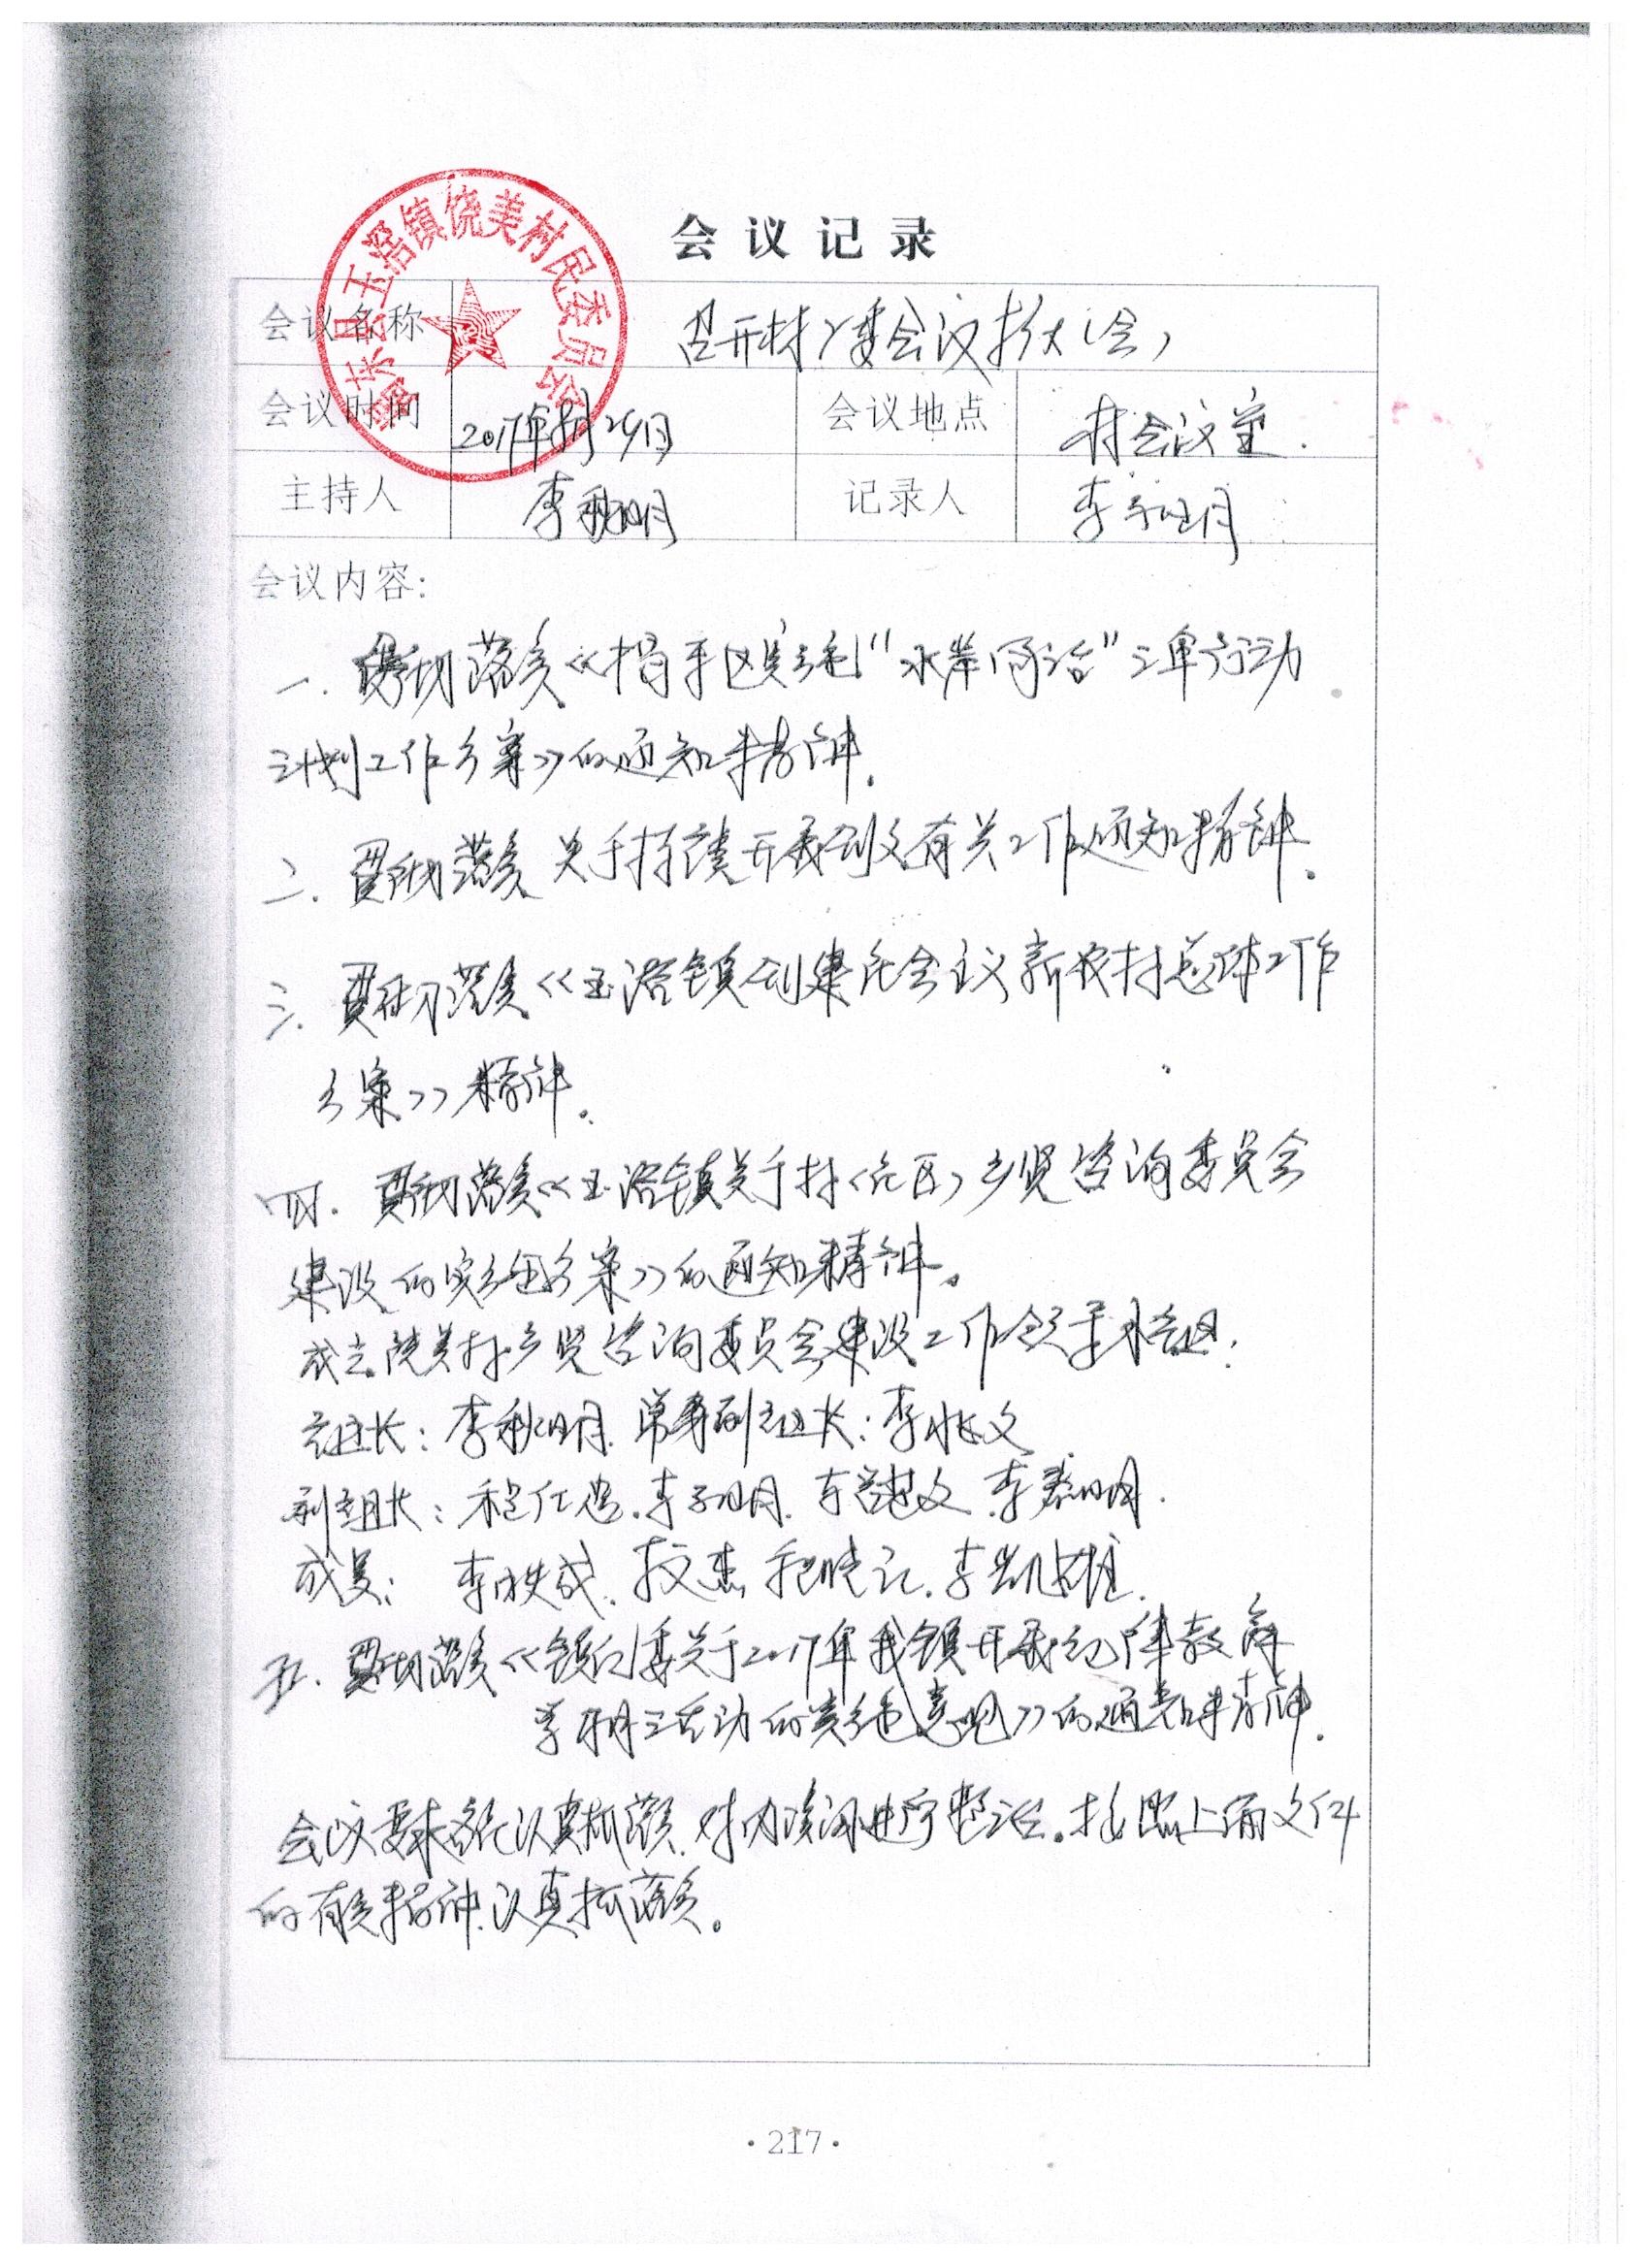 会议记录
揭东县玉滘镇饶美村民委员会
会议名称 召开村两委会议扩大(会)
会议时间 2017年 月29日 会议地点 村会议室.
主持人 李秋明 记录人 李
会议内容:
一. 贯彻落实《揭东区实施"水岸同治"三年行动
计划工作方案》的通知精神.
二. 贯彻落实关于持续开展创文有关工作通知精神.
三. 贯彻落实《玉滘镇创建社会主义新农村总体工作
方案》精神.
四. 贯彻落实《玉滘镇关于村(社区)乡贤咨询委员会
建设的实施方案》的通知精神。
成立饶美村乡贤咨询委员会建设工作领导小组:
组长: 李秋明. 常务副组长: 李 文
副组长:
成员:
五. 贯彻落实《镇纪委关于2017年我镇开展纪律教育
学习月活动的实施意见》的通知精神.
会议要求各 认真抓落实. 对内 进行整治. 按照上面文件
的有关精神. 认真抓落实。
·217·